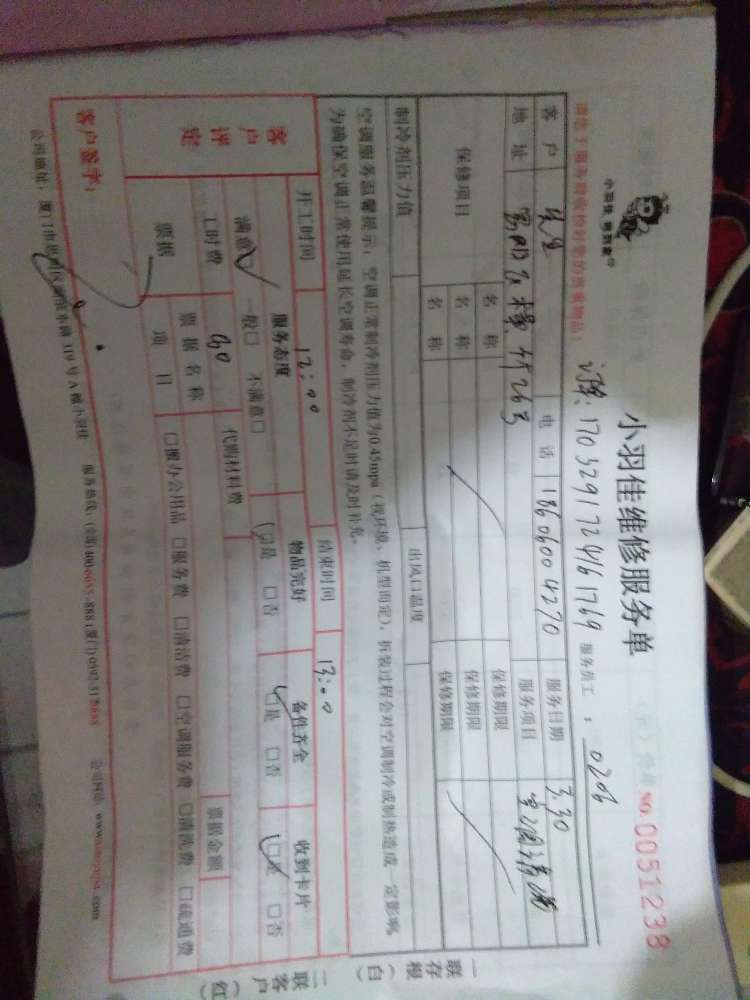 小羽佳维修服务单
NO.0051238
小羽佳 到家
170329172416 1769
服务员工：0206
客户 先生 电话 18606004270 服务日期 3.30
地址 26号 服务项目 空调清洗
保修项目 名称 保修期限
名称 保修期限
名称 保修期限
制冷剂压力值 出风口温度
空调服务温馨提示：空调正常制冷剂压力值为0.45mpa（视环境、机型而定），拆装过程会对空调制冷或制热造成一定影响，
为确保空调正常使用延长空调寿命，制冷剂不足时请及时补充。
开工时间 12:00 结束时间 13:00
客户评定 服务态度 物品完好 备件齐全 收到卡片
满意□ 一般□ 不满意□ □是 □否 □是 □否 □是 □否
工时费 90 代购材料费
票据 票据名称 票据金额
项目 □搬办公用品 □服务费 □清洁费 □空调服务费 □清洗费 □疏通费
客户签字：
公司地址：厦门市 319号A幢小羽佳 服务热线：(全国)400-0655-888 公司网站
一联存根（白）
二联客户（红